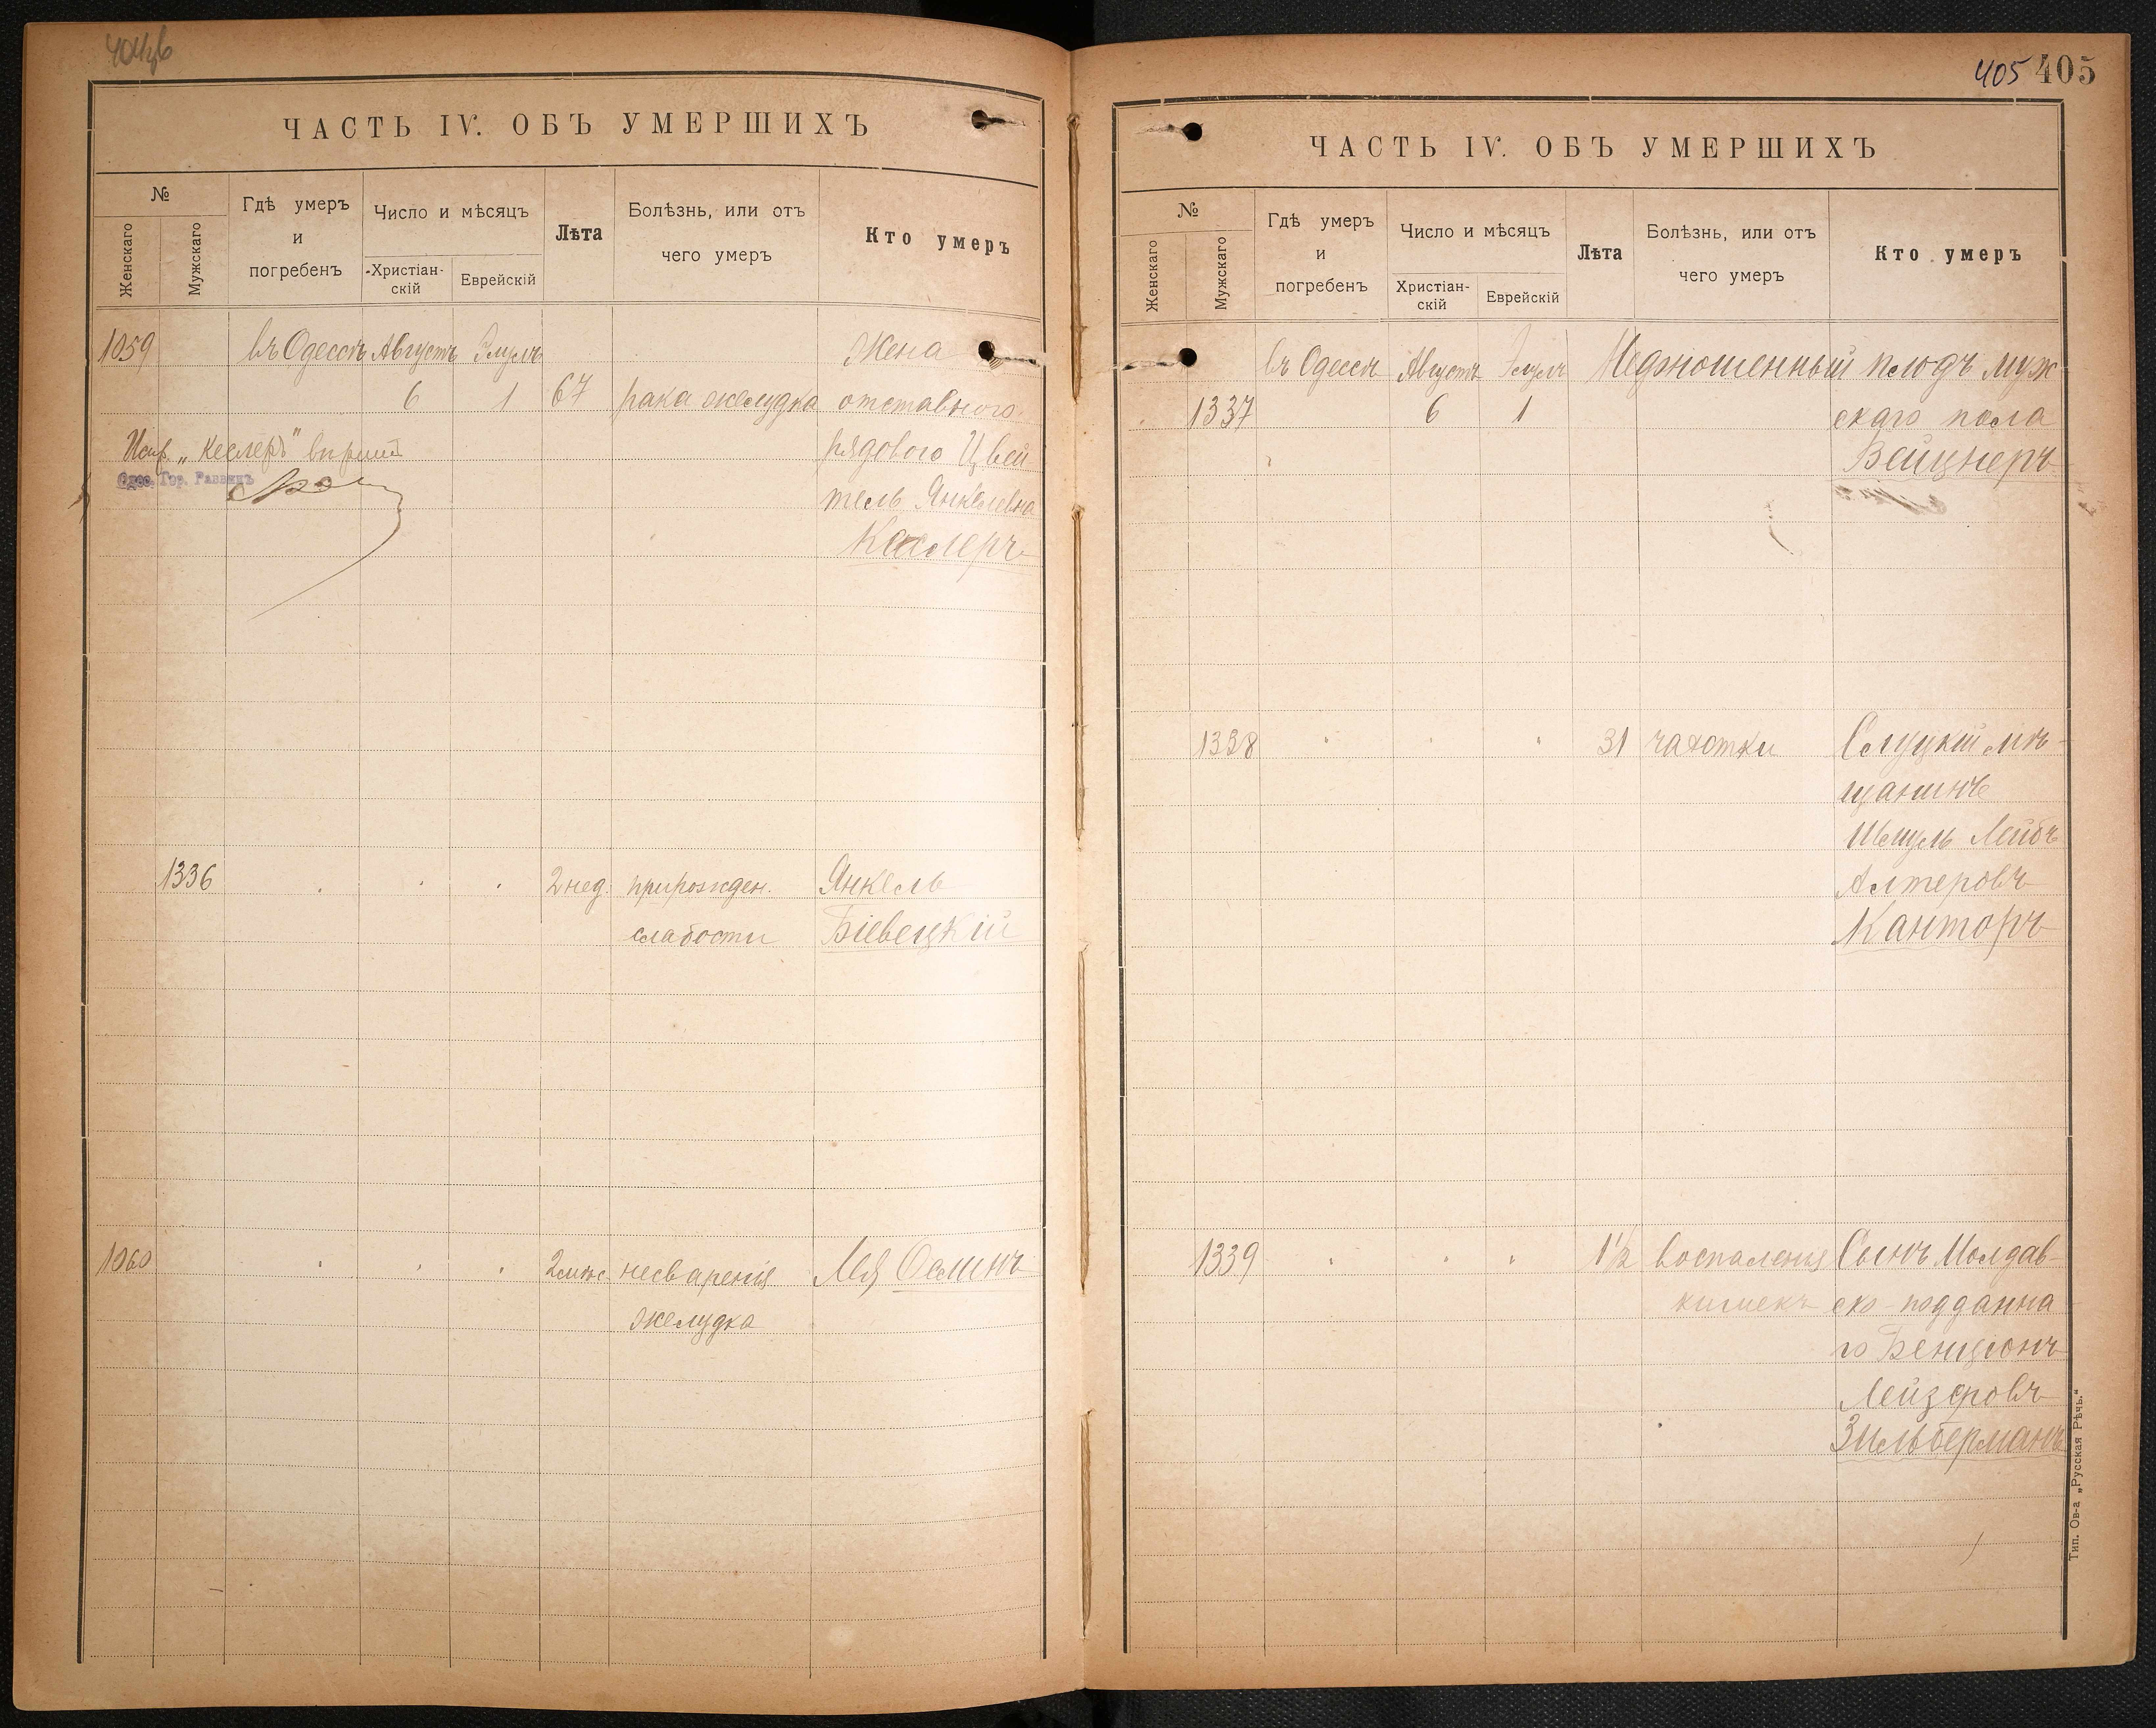 ЧАСТЬ IV. ОБЪ УМЕРШИХЪ
№
Женскаго
Мужскаго
Гдѣ умеръ
и
погребенъ
Число и мѣсяцъ
Христіан-
скій
Еврейскій
Лѣта
Болѣзнь, или отъ
чего умеръ
Кто умеръ
1059 въ Одессѣ Августъ Элулъ Жена
6 1 67 рака желудка отставного
Испр. „Кеслеръ" вѣрить рядового Цвей
Одес. Гор. Раввинъ
тель Янкелевна
Кеслеръ
1336 2 нед. прирожден. Янкель
слабости Біевецкій
1060 2 мѣс. несваренія Лея Ослинъ
желудка
405 405
ЧАСТЬ IV. ОБЪ УМЕРШИХЪ
№
Женскаго
Мужскаго
Гдѣ умеръ
и
погребенъ
Число и мѣсяцъ
Христіан-
скій
Еврейскій
Лѣта
Болѣзнь, или отъ
чего умеръ
Кто умеръ
въ Одессѣ Августъ Элулъ Недоношенный плодъ муж
1337 6 1 скаго пола
Вейцнеръ
1338 " " " 31 чахотки Слуцкій мѣ-
щанинъ
Шмуль Лейбъ
Алтеровъ
Канторъ
1339 " " " 1½ воспаленія Сынъ Молдав-
кишекъ ско-подданна
го Бенціонъ
Лейзеровъ
Зильберманъ
Тип. Ов-а „Русская Рѣчь."